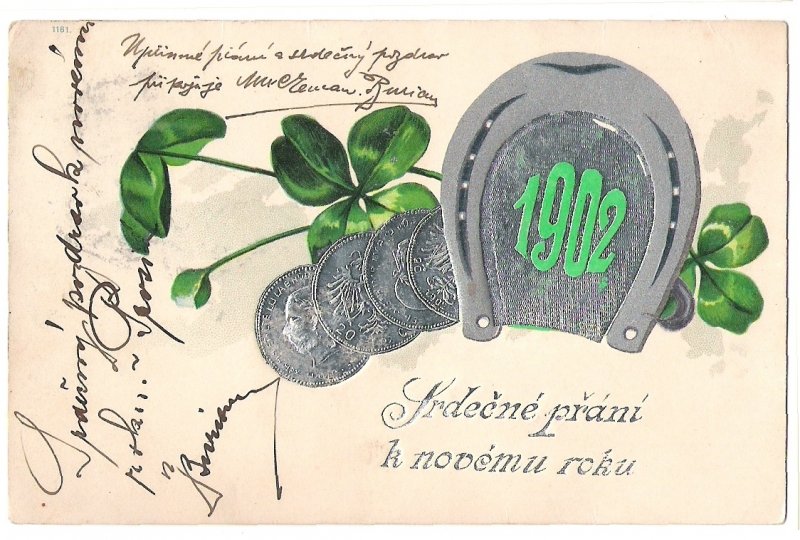 1161.
Upřímné přání a srdečný pozdrav
připojuje Burian
1902
Srdečné přání
k novému roku
Srdečný pozdrav k novému
roku
Burian